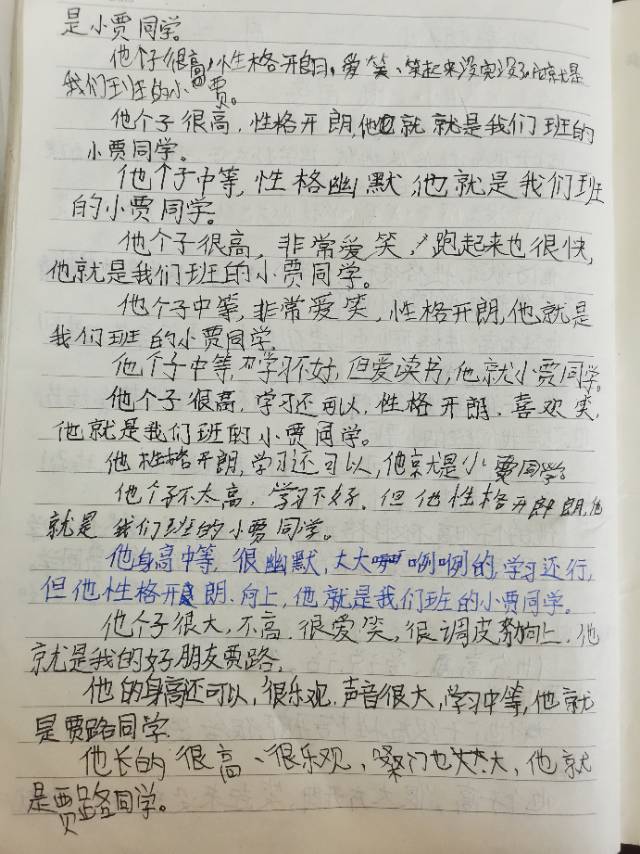 是小贾同学。
他个子很高，性格开朗，爱笑、笑起来没完没了，他就是
我们班的小贾。
他个子很高，性格开朗，他就就是我们班的
小贾同学。
他个子中等，性格幽默，他就是我们班
的小贾同学。
他个子很高，非常爱笑，跑起来也很快，
他就是我们班的小贾同学。
他个子中等，非常爱笑，性格开朗，他就是
我们班的小贾同学。
他个子中等，学习不好，但爱读书，他就小贾同学。
他个子很高，学习还可以，性格开朗，喜欢笑，
他就是我们班的小贾同学。
他性格开朗，学习还可以，他就是小贾同学。
他个子不太高，学习不好，但他性格开朗，他
就是我们班的小贾同学。
他身高中等，很幽默，大大咧咧的，学习还行，
但他性格开朗、向上，他就是我们班的小贾同学。
他个子很大，不高，很爱笑，很调皮，向上，他
就是我的好朋友贾路。
他的身高还可以，很乐观，声音很大，学习中等，他就
是贾路同学。
他长的很高、很乐观，嗓门也大，他就
是贾路同学。